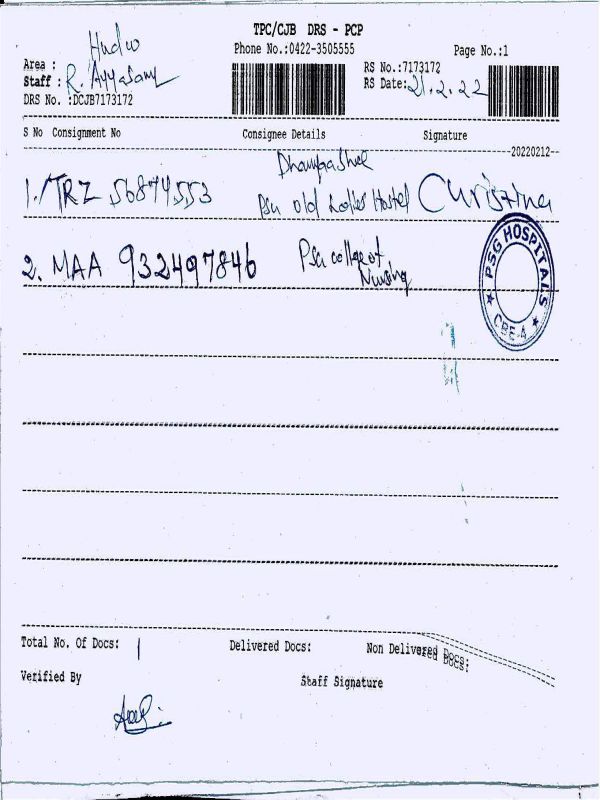 TPC/CJB DRS - PCP
Hudco
Phone No.:0422-3505555 Page No.:1
Area :
Staff : R. Ayyasamy
RS No.:7173172
RS Date: 21.2.22
DRS No. :DCJB7173172
S No Consignment No Consignee Details Signature
20220212
1. TRZ 56874553 Psg old Ladies Hostel Christina
2. MAA 932497846 Psg college of
Nursing
PSG HOSPITALS
CBE-4
Total No. Of Docs: 1 Delivered Docs: Non Delivered Docs:
Verified By Staff Signature